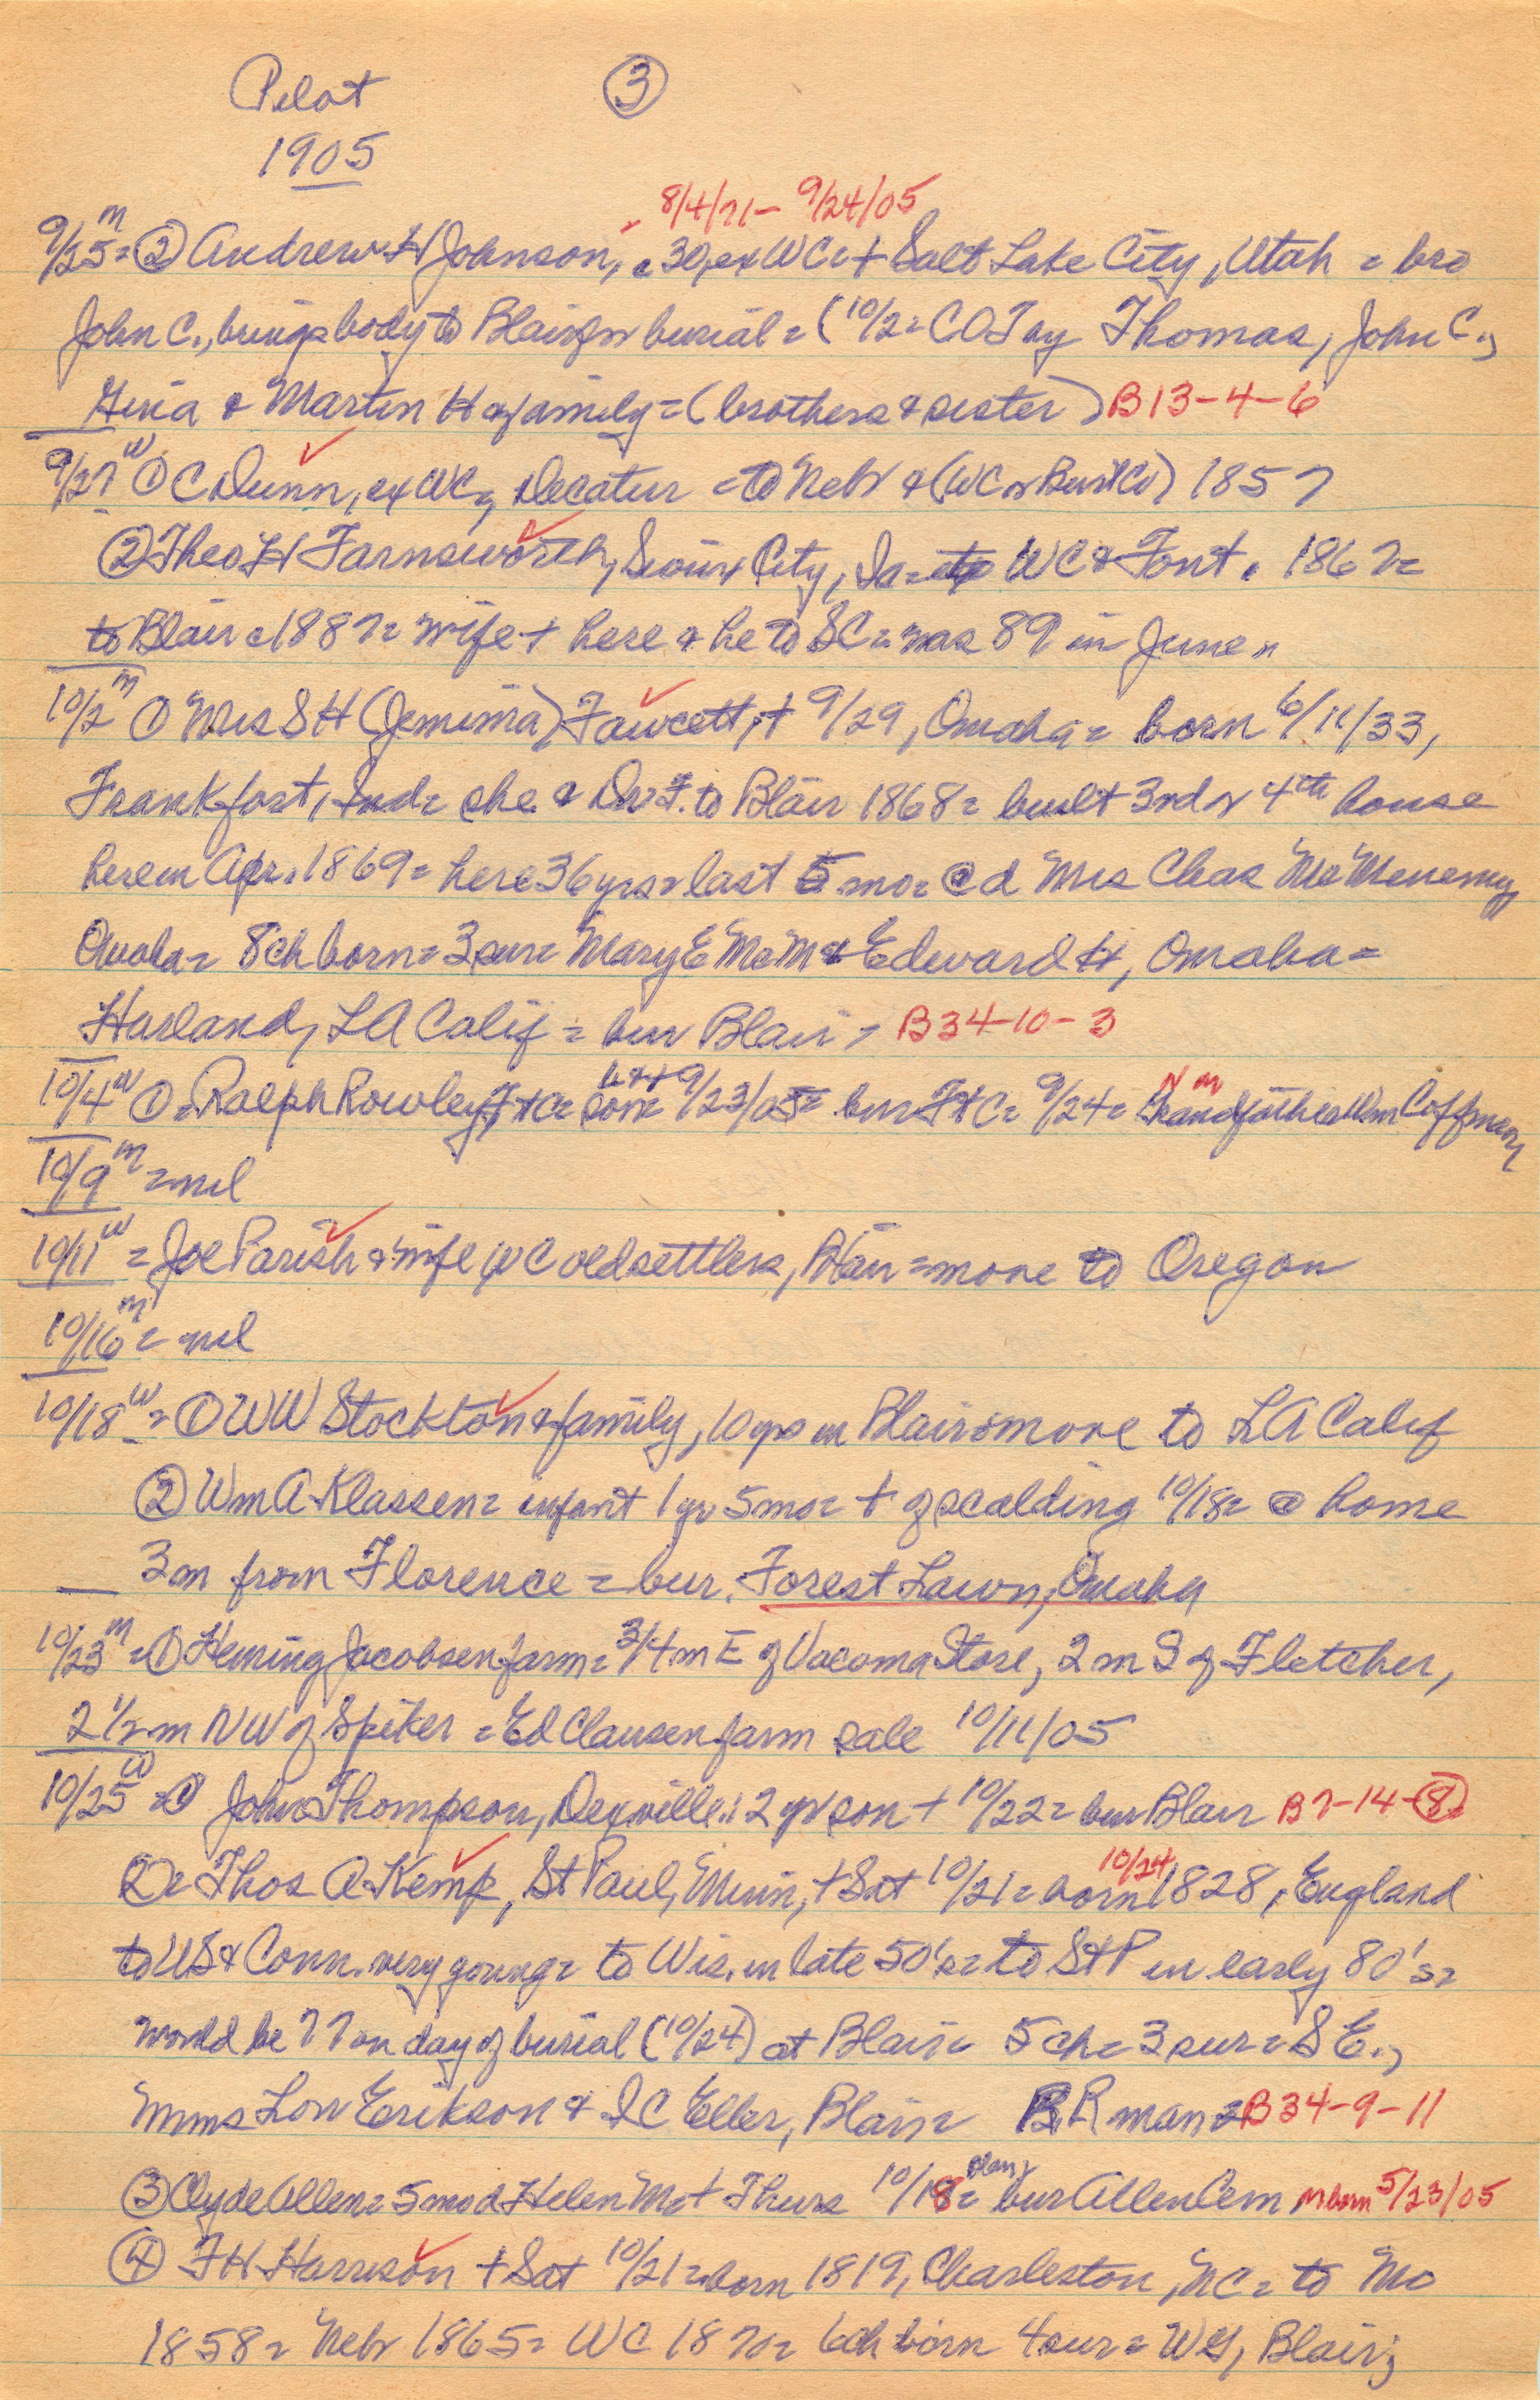 Pilot ③
1905
8/4/71 - 9/24/05
9/25 m = ② Andrew H Johnson, c 30, ex WC = + Salt Lake City, Utah = bro
John C., brings body to Blair for burial = (10/2 = CO Tay Thomas, John C.,
& Martin H & family = (brothers & sister) B13-4-6
9/27 w ① C Dunn, ex WC, Decatur = to Nebr & (WC or Burt Co) 1857
② Theo H Farnsworth, Sioux City, Ia = to WC & Font. 1867 =
to Blair c 1887 = wife + here & he to SC = was 89 in June =
10/2 m ① Mrs S H (Jemima) Fawcett, + 9/29, Omaha = born 6/11/33,
Frankfort, Ind = she & Dr F. to Blair 1868 = built 3rd or 4th house
here in Apr. 1869 = here 36 yrs = last 5 mo = @ d Mrs Chas McMenemy
Omaha = 8 ch born = 3 sur = Mary E McM & Edward H, Omaha =
Harland, LA Calif = bur Blair = B34-10-3
10/4 w ① = Ralph Rowley, Ft C = son = b & + 9/23/05 = bur Ft C = 9/24 = Grandfather Wm Coffman
N m
10/9 m = nil
10/11 w = Joe Parish & wife, WC old settlers, Blair = move to Oregon
10/16 m = nil
10/18 w = ① WW Stockton & family, 10 yrs in Blair = move to LA Calif
② Wm A Klassen = infant 1 yr 5 mo = + of scalding 10/18 = @ home
3 m from Florence = bur. Forest Lawn, Omaha
10/23 m = ① Heming Jacobsen farm = 3/4 m E of Vacoma Store, 2 m S of Fletcher,
2 1/2 m NW of Spiker = Ed Clausen farm sale 10/11/05
10/25 w = ① John Thompson, Dexville: 2 yr son + 10/22 = bur Blair B7-14-⑧
② = Thos A Kemp, St Paul, Minn, + Sat 10/21 = born 10/24 1828, England
to US & Conn. very young = to Wis. in late 50's = to St P in early 80's =
would be 77 on day of burial (10/24) at Blair = 5 ch = 3 sur = S E.,
Mmes Lon Erikson & I C Eller, Blair = RR man = B34-9-11
③ Clyde Allen = 5 mo d Helen M + Thurs 10/18 = bur Allen Cem M born 5/23/05
④ F H Harrison + Sat 10/21 = born 1819, Charleston, NC = to Mo
1858 = Nebr 1865 = WC 1870 = 6 ch born 4 sur = WG, Blair;